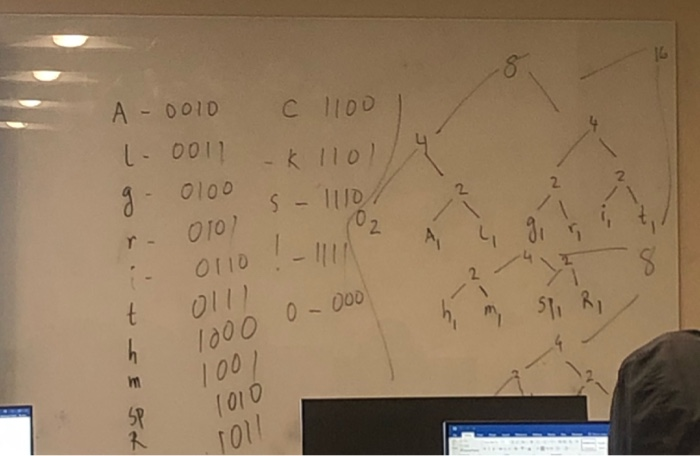 A - 0010
L - 0011
g - 0100
r - 0101
i - 0110
t 0111
h 1000
m 1001
SP 1010
R 1011
C 1100
- K 1101
S - 1110
! - 1111
O - 000
16
8
4 4
O2 2 2 2
A1 L1 g1 r1 i1 t1
8
4
2 2
h1 m1 SP1 R1
4
2 2